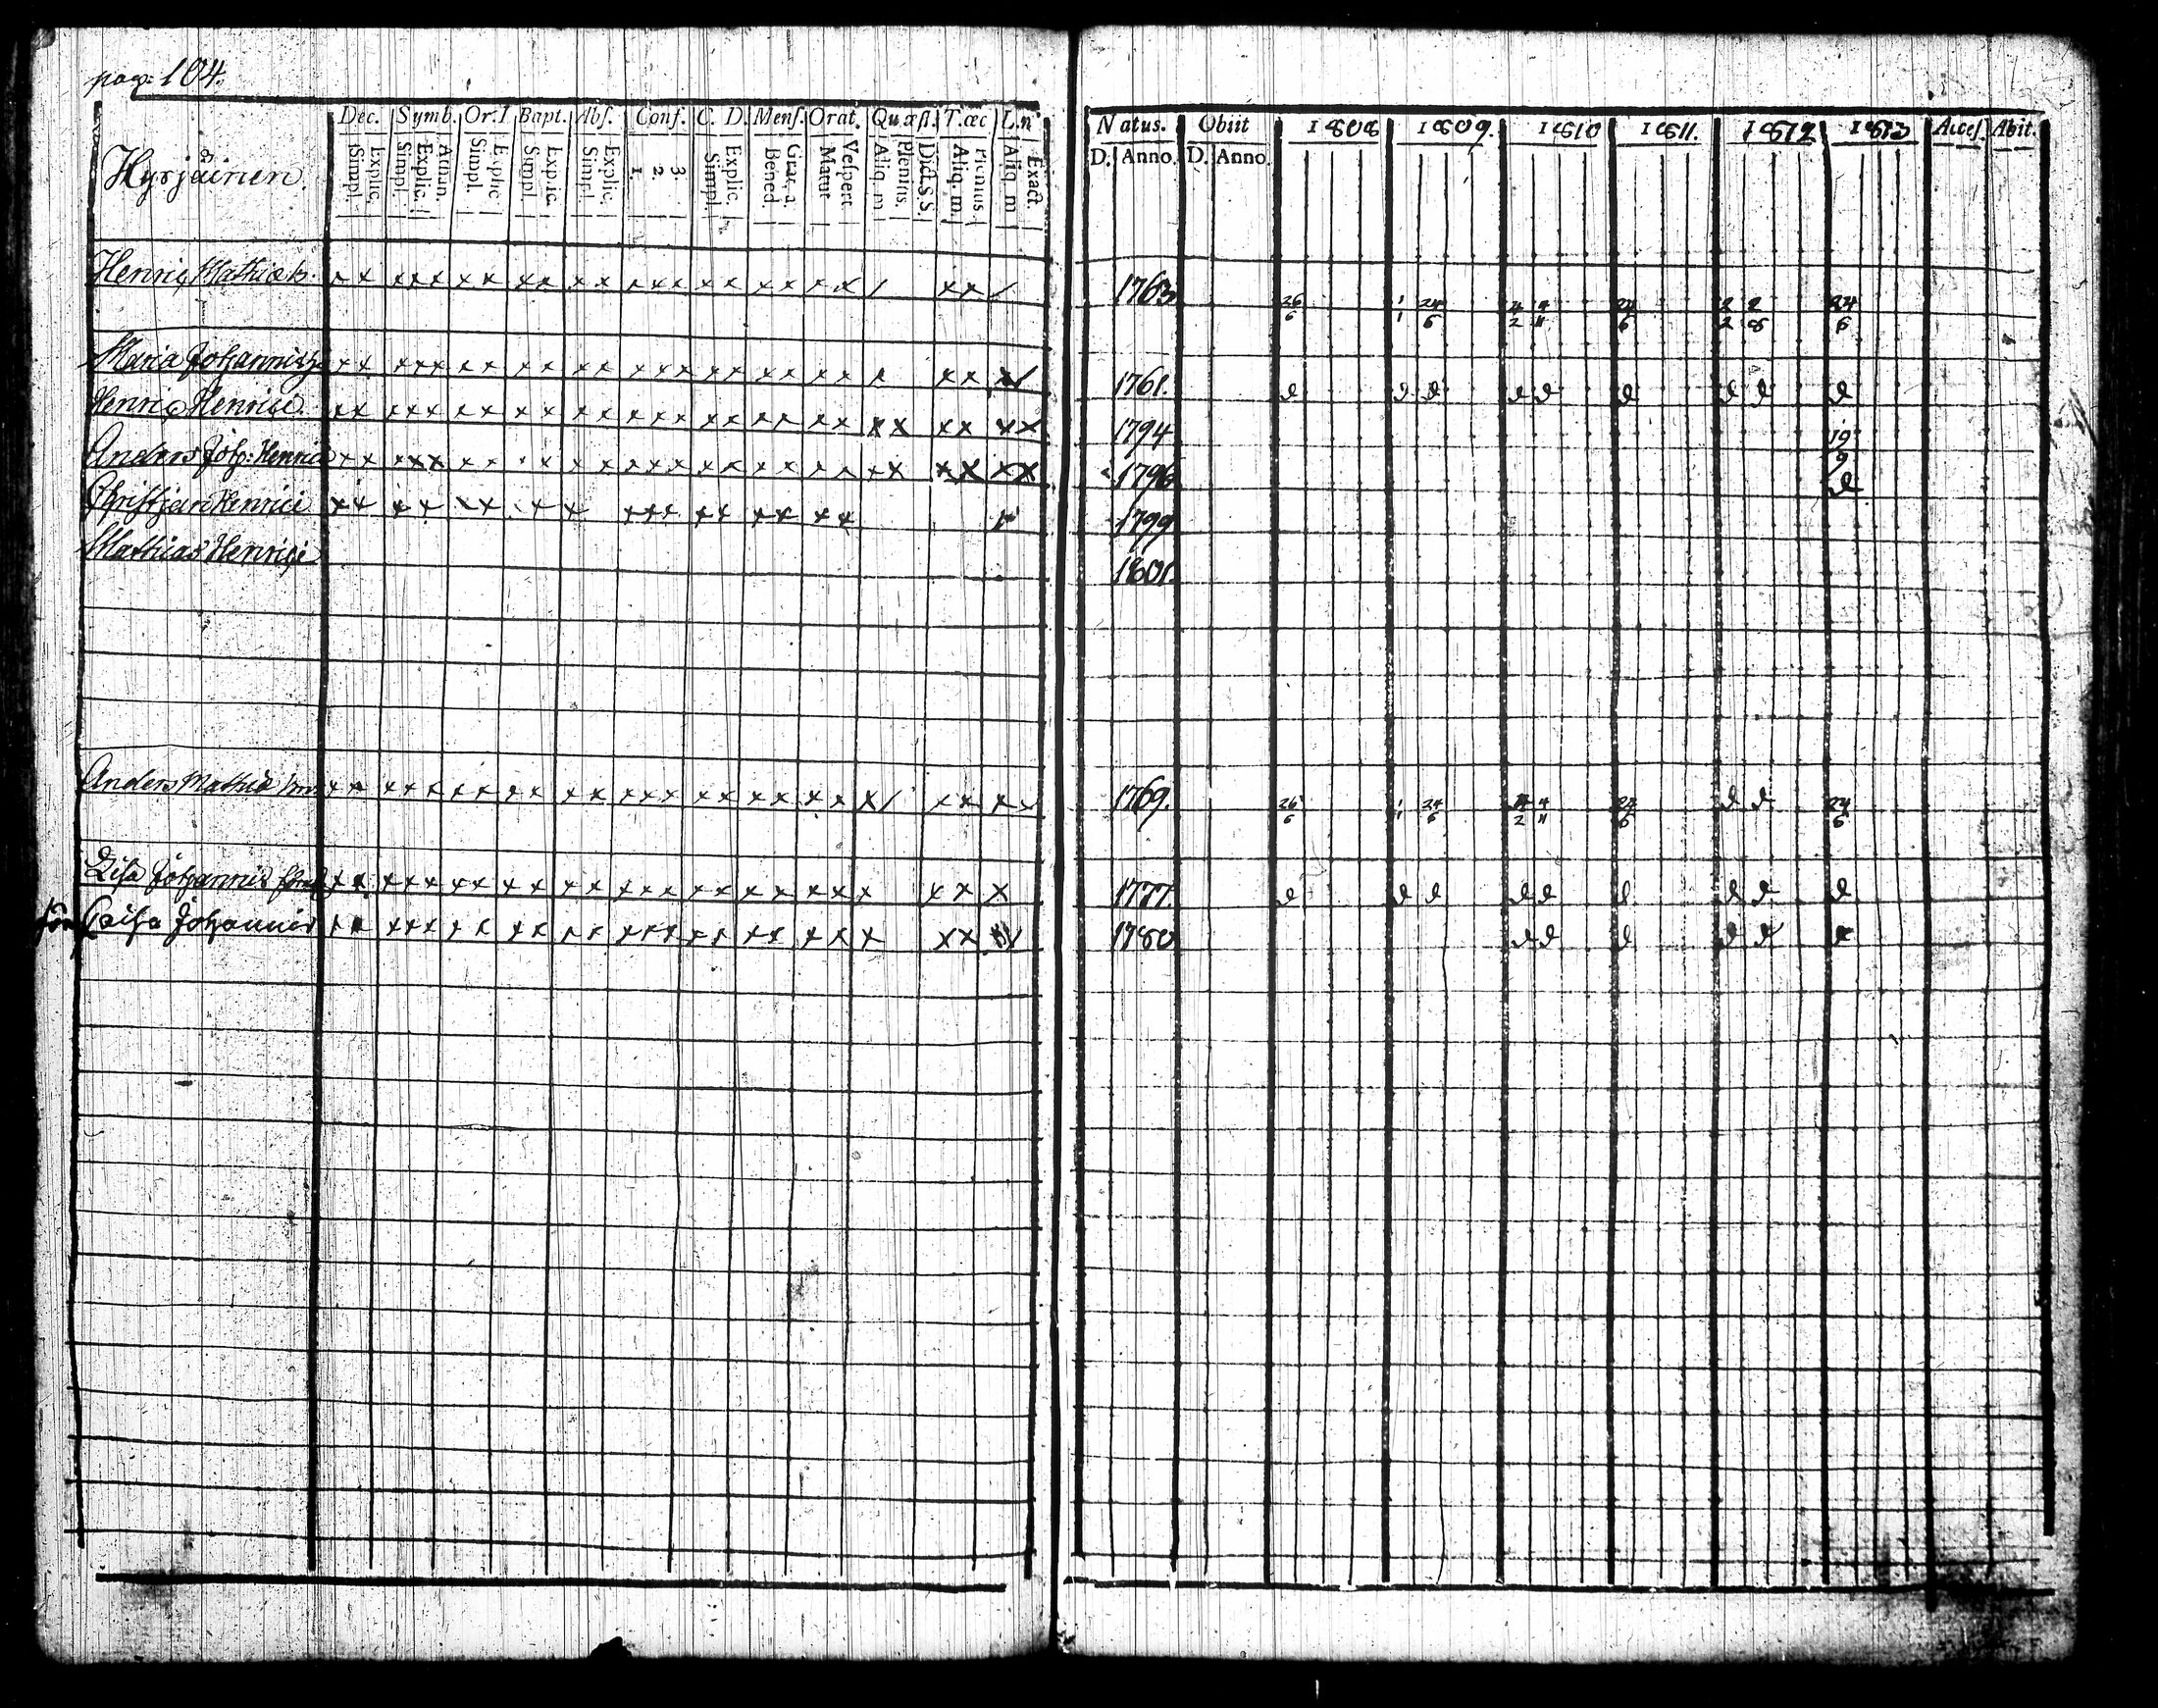 pag: 104.
Dec. Symb. Or. Bapt. Abs. Conf. C. D. Mens. Orat. Quæst. T. œc L. n
Simpl. Explic. Simpl. Explic. Athan. Simpl. Explic Simpl. Explic. Simpl. Explic. 1. 2. 3. Simpl. Explic. Bened. Grat. a. Matut Vespert. Aliq. m Plenius. Dict. S. S. Aliq. m. Plenius. Aliq m Exact
Hyrjäinen.
Natus. Obiit 1808 1809. 1810 1811. 1812 1813 Acces. Abit.
D. Anno. D. Anno.
Henric Mathiæ 1763 26/6 1/1 24/6 4/2 4/11 24/6 2/2 2/8 24/6
Maria Johannis 1761. d d d d d d d d d
Henric Henrici 1794 19/9
Anders Joh: Henrici 1796 d
Christjan Henrici 1799
Mathias Henrici 1801.
Anders Mathiæ 1769. 26/6 1/1 24/6 4/2 4/11 24/6 d d 24/6
Lisa Johannis 1777. d d d d d d d d d
Caisa Johannis 1780 d d d d d d